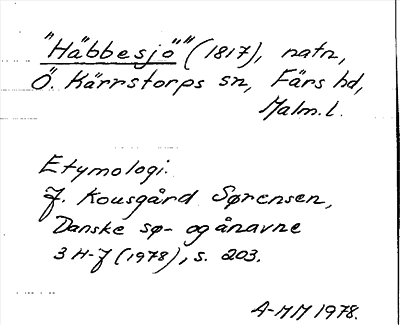 "Häbbesjö" (1817), natn,
Ö. Kärrstorps sn, Färs hd,
Malm. l.
Etymologi:
J. Kousgård Sørensen,
Danske sø- og ånavne
3 H-J (1978), s. 203.
A-MM 1978.